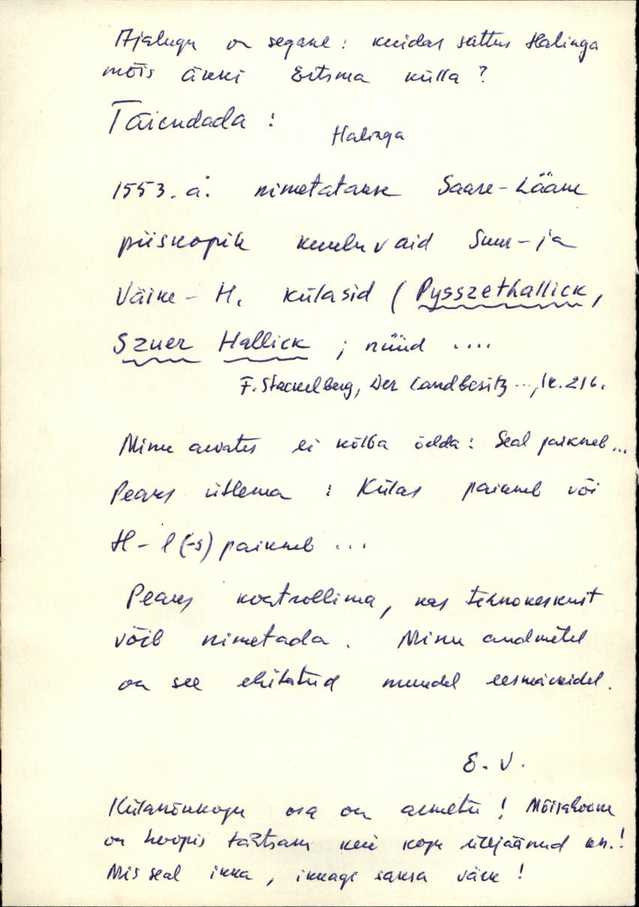 Ajalugu on segane: kuidas sattus Halinga
mõis äkki Ertsma külla?
Täiendada:
Halinga
1553. a. nimetatakse Saare-Lääne
piiskopile kuuluvaid Suur- ja
Väike-H. külasid (Pysszethallick,
Szuer Hallick; nüüd ....
F. Stackelberg, Der Landbesitz ..., lk. 216.
Minu arvates ei kõlba öelda: Seal paikneb...
Peaks ütlema: Külas paikneb või
H-l (-s) paikneb ...
Peaks kontrollima, kas tehnokeskust
võib nimetada. Minu andmetel
on see ehitatud muudel eesmärkidel.
E. V.
Külanõukogu osa on armetu! Mõisahoone
on hoopis tähtsam kui kogu ülejäänud
Mis seal ikka, ikkagi saksa värk!